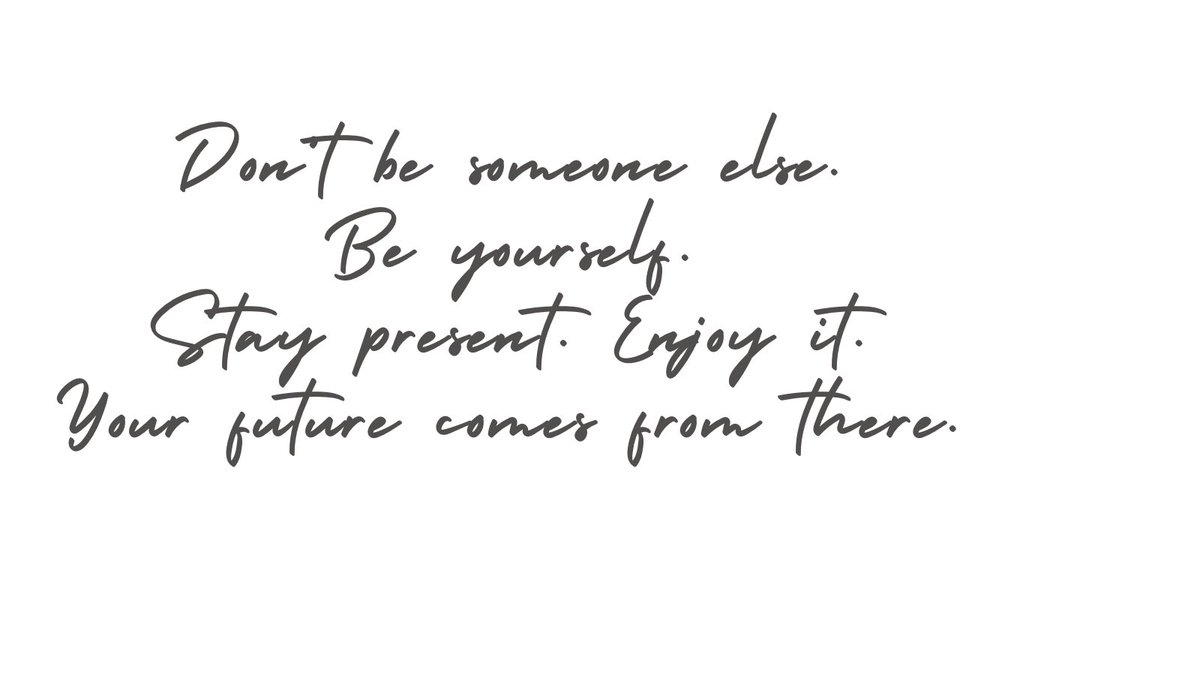 Don't be someone else.
Be yourself.
Stay present. Enjoy it.
Your future comes from there.